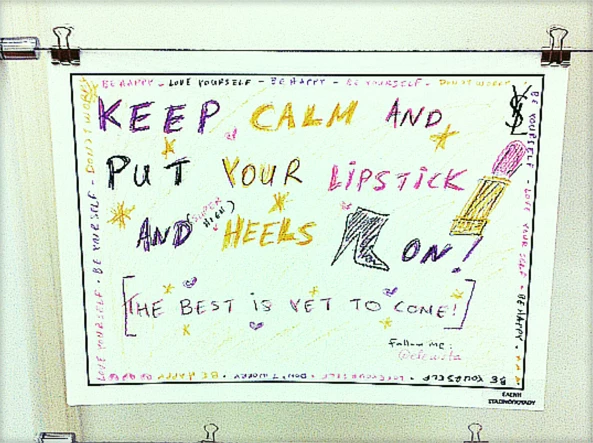 BE HAPPY - LOVE YOURSELF - BE HAPPY - BE YOURSELF - DON'T WORRY
KEEP CALM AND
PUT YOUR LIPSTICK
AND (SUPER HIGH) HEELS ON!
[THE BEST IS YET TO COME!]
Follow me:
LOVE YOURSELF · BE YOURSELF - DON'T WORRY
BE YOURSELF · LOVE YOUR SELF · BE HAPPY
BE HAPPY · DON'T WORRY · LOVE YOURSELF · BE YOURSELF
ΕΛΕΝΗ
ΣΤΑΣΙΝΟΠΟΥΛΟΥ